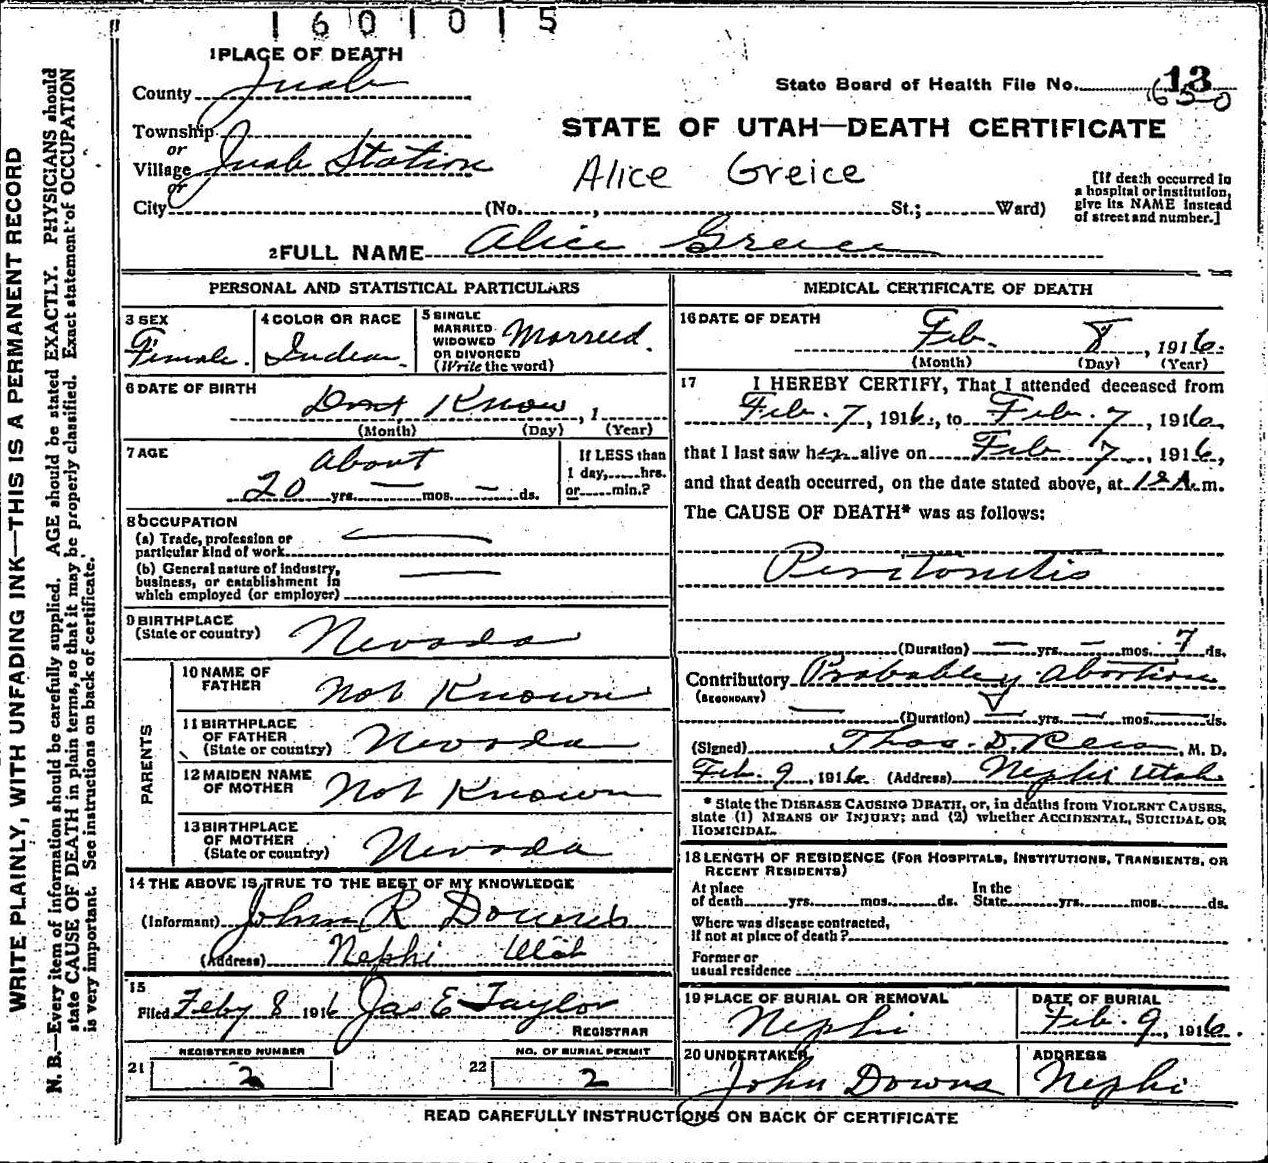 1601015
1 PLACE OF DEATH
County Juab
State Board of Health File No. 13
650
Township
or
Village Juab Station
or
STATE OF UTAH—DEATH CERTIFICATE
Alice Greice
[If death occurred in
a hospital or institution,
give its NAME instead
of street and number.]
City (No. , St.; Ward)
2 FULL NAME Alice Greice
PERSONAL AND STATISTICAL PARTICULARS
3 SEX
Female.
4 COLOR OR RACE
Indian
5 SINGLE
MARRIED
WIDOWED
OR DIVORCED
(Write the word)
Married.
6 DATE OF BIRTH
Dont Know, 1
(Month) (Day) (Year)
7 AGE
About
20 yrs. — mos. — ds.
If LESS than
1 day, hrs.
or min.?
8 OCCUPATION
(a) Trade, profession or
particular kind of work —
(b) General nature of industry,
business, or establishment in
which employed (or employer) —
9 BIRTHPLACE
(State or country) Nevada
PARENTS
10 NAME OF
FATHER Not Known
11 BIRTHPLACE
OF FATHER
(State or country) Nevada
12 MAIDEN NAME
OF MOTHER Not Known
13 BIRTHPLACE
OF MOTHER
(State or country) Nevada
14 THE ABOVE IS TRUE TO THE BEST OF MY KNOWLEDGE
(Informant) John R Downs
(Address) Nephi Utah
15
Filed Feby 8 1916 Jas E Taylor
REGISTRAR
21 REGISTERED NUMBER
2
22 NO. OF BURIAL PERMIT
2
MEDICAL CERTIFICATE OF DEATH
16 DATE OF DEATH
Feb. 8, 1916.
(Month) (Day) (Year)
17 I HEREBY CERTIFY, That I attended deceased from
Feb. 7, 1916, to Feb. 7, 1916,
that I last saw her alive on Feb 7, 1916,
and that death occurred, on the date stated above, at 12 A.m.
The CAUSE OF DEATH* was as follows:
Peritonitis
(Duration) — yrs. — mos. 7 ds.
Contributory Probably Abortion
(SECONDARY)
— (Duration) — yrs. — mos. — ds.
(Signed) Thos. D. Rees, M. D.
Feb. 9, 1916 (Address) Nephi Utah
* State the DISEASE CAUSING DEATH, or, in deaths from VIOLENT CAUSES,
state (1) MEANS OF INJURY; and (2) whether ACCIDENTAL, SUICIDAL OR
HOMICIDAL.
18 LENGTH OF RESIDENCE (FOR HOSPITALS, INSTITUTIONS, TRANSIENTS, OR
RECENT RESIDENTS)
At place In the
of death yrs. mos. ds. State yrs. mos. ds.
Where was disease contracted,
If not at place of death?
Former or
usual residence
19 PLACE OF BURIAL OR REMOVAL
Nephi
DATE OF BURIAL
Feb. 9, 1916.
20 UNDERTAKER
John Downs
ADDRESS
Nephi
READ CAREFULLY INSTRUCTIONS ON BACK OF CERTIFICATE
WRITE PLAINLY, WITH UNFADING INK—THIS IS A PERMANENT RECORD
N. B.—Every item of information should be carefully supplied. AGE should be stated EXACTLY. PHYSICIANS should
state CAUSE OF DEATH in plain terms, so that it may be properly classified. Exact statement of OCCUPATION
is very important. See instructions on back of certificate.